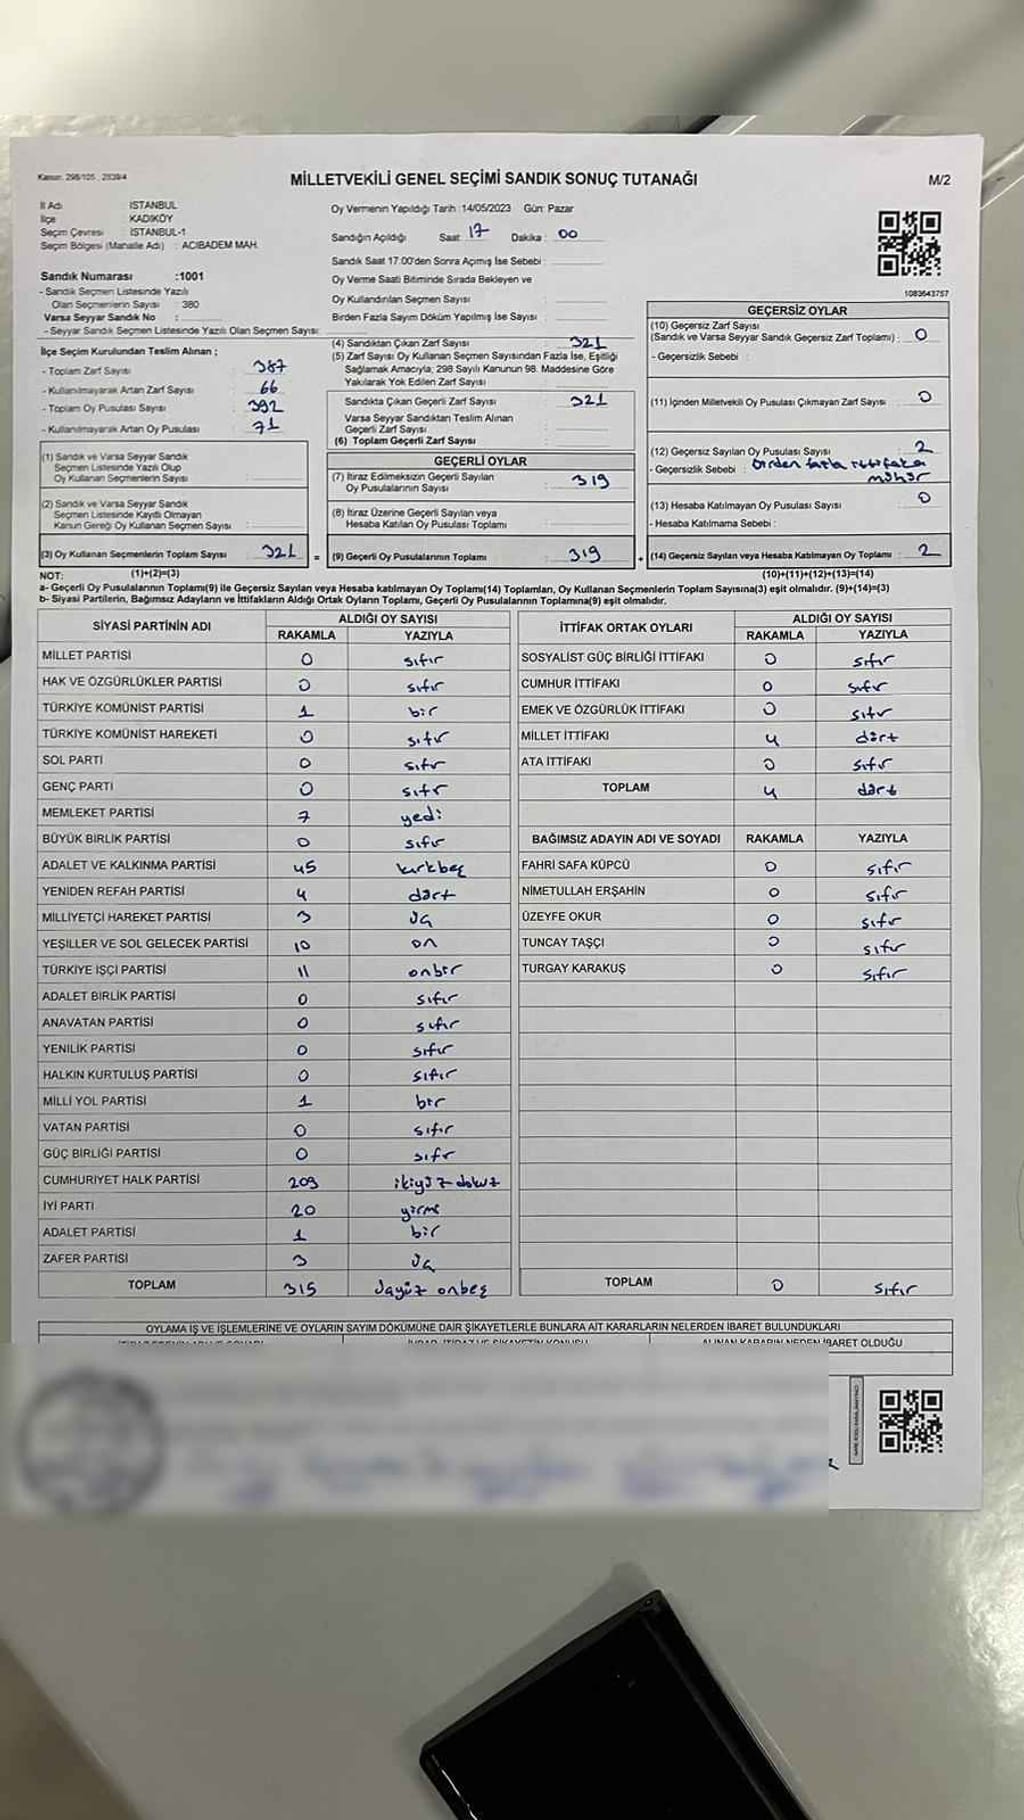 Kanun: 298/105, 2839/4
MİLLETVEKİLİ GENEL SEÇİMİ SANDIK SONUÇ TUTANAĞI
M/2
İl Adı : İSTANBUL
İlçe : KADIKÖY
Seçim Çevresi : İSTANBUL-1
Seçim Bölgesi (Mahalle Adı) : ACIBADEM MAH.
Oy Vermenin Yapıldığı Tarih :14/05/2023 Gün: Pazar
Sandığın Açıldığı Saat : 17 Dakika : 00
Sandık Saat 17:00'den Sonra Açımış İse Sebebi :
Oy Verme Saati Bitiminde Sırada Bekleyen ve
Oy Kullandırılan Seçmen Sayısı :
Birden Fazla Sayım Döküm Yapılmış İse Sayısı :
1083643757
Sandık Numarası :1001
- Sandık Seçmen Listesinde Yazılı
Olan Seçmenlerin Sayısı : 380
Varsa Seyyar Sandık No :
- Seyyar Sandık Seçmen Listesinde Yazılı Olan Seçmen Sayısı:
İlçe Seçim Kurulundan Teslim Alınan ;
- Toplam Zarf Sayısı : 387
- Kullanılmayarak Artan Zarf Sayısı : 66
- Toplam Oy Pusulası Sayısı : 392
- Kullanılmayarak Artan Oy Pusulası : 71
(1) Sandık ve Varsa Seyyar Sandık
Seçmen Listesinde Yazılı Olup
Oy Kullanan Seçmenlerin Sayısı :
(2) Sandık ve Varsa Seyyar Sandık
Seçmen Listesinde Kayıtlı Olmayan
Kanun Gereği Oy Kullanan Seçmen Sayısı :
(3) Oy Kullanan Seçmenlerin Toplam Sayısı : 321
(1)+(2)=(3)
(4) Sandıktan Çıkan Zarf Sayısı : 321
(5) Zarf Sayısı Oy Kullanan Seçmen Sayısından Fazla İse, Eşitliği
Sağlamak Amacıyla; 298 Sayılı Kanunun 98. Maddesine Göre
Yakılarak Yok Edilen Zarf Sayısı :
Sandıkta Çıkan Geçerli Zarf Sayısı : 321
Varsa Seyyar Sandıktan Teslim Alınan
Geçerli Zarf Sayısı :
(6) Toplam Geçerli Zarf Sayısı :
GEÇERLİ OYLAR
(7) İtiraz Edilmeksizin Geçerli Sayılan
Oy Pusulalarının Sayısı : 319
(8) İtiraz Üzerine Geçerli Sayılan veya
Hesaba Katılan Oy Pusulası Toplamı :
= (9) Geçerli Oy Pusulalarının Toplamı : 319
GEÇERSİZ OYLAR
(10) Geçersiz Zarf Sayısı
(Sandık ve Varsa Seyyar Sandık Geçersiz Zarf Toplamı) : 0
- Geçersizlik Sebebi :
(11) İçinden Milletvekili Oy Pusulası Çıkmayan Zarf Sayısı : 0
(12) Geçersiz Sayılan Oy Pusulası Sayısı : 2
- Geçersizlik Sebebi : birden fazla ittifaka
mühür
(13) Hesaba Katılmayan Oy Pusulası Sayısı : 0
- Hesaba Katılmama Sebebi :
+ (14) Geçersiz Sayılan veya Hesaba Katılmayan Oy Toplamı : 2
(10)+(11)+(12)+(13)=(14)
NOT:
a- Geçerli Oy Pusulalarının Toplamı(9) ile Geçersiz Sayılan veya Hesaba katılmayan Oy Toplamı(14) Toplamları, Oy Kullanan Seçmenlerin Toplam Sayısına(3) eşit olmalıdır. (9)+(14)=(3)
b- Siyasi Partilerin, Bağımsız Adayların ve İttifakların Aldığı Ortak Oyların Toplamı, Geçerli Oy Pusulalarının Toplamına(9) eşit olmalıdır.
SİYASİ PARTİNİN ADI ALDIĞI OY SAYISI
RAKAMLA YAZIYLA
MİLLET PARTİSİ 0 sıfır
HAK VE ÖZGÜRLÜKLER PARTİSİ 0 sıfır
TÜRKİYE KOMÜNİST PARTİSİ 1 bir
TÜRKİYE KOMÜNİST HAREKETİ 0 sıfır
SOL PARTİ 0 sıfır
GENÇ PARTİ 0 sıfır
MEMLEKET PARTİSİ 7 yedi
BÜYÜK BİRLİK PARTİSİ 0 sıfır
ADALET VE KALKINMA PARTİSİ 45 kırkbeş
YENİDEN REFAH PARTİSİ 4 dört
MİLLİYETÇİ HAREKET PARTİSİ 3 üç
YEŞİLLER VE SOL GELECEK PARTİSİ 10 on
TÜRKİYE İŞÇİ PARTİSİ 11 onbir
ADALET BİRLİK PARTİSİ 0 sıfır
ANAVATAN PARTİSİ 0 sıfır
YENİLİK PARTİSİ 0 sıfır
HALKIN KURTULUŞ PARTİSİ 0 sıfır
MİLLİ YOL PARTİSİ 1 bir
VATAN PARTİSİ 0 sıfır
GÜÇ BİRLİĞİ PARTİSİ 0 sıfır
CUMHURİYET HALK PARTİSİ 209 ikiyüz dokuz
İYİ PARTİ 20 yirmi
ADALET PARTİSİ 1 bir
ZAFER PARTİSİ 3 üç
TOPLAM 315 üçyüz onbeş
İTTİFAK ORTAK OYLARI ALDIĞI OY SAYISI
RAKAMLA YAZIYLA
SOSYALİST GÜÇ BİRLİĞİ İTTİFAKI 0 sıfır
CUMHUR İTTİFAKI 0 sıfır
EMEK VE ÖZGÜRLÜK İTTİFAKI 0 sıfır
MİLLET İTTİFAKI 4 dört
ATA İTTİFAKI 0 sıfır
TOPLAM 4 dört
BAĞIMSIZ ADAYIN ADI VE SOYADI RAKAMLA YAZIYLA
FAHRİ SAFA KÜPCÜ 0 sıfır
NİMETULLAH ERŞAHİN 0 sıfır
ÜZEYFE OKUR 0 sıfır
TUNCAY TAŞÇI 0 sıfır
TURGAY KARAKUŞ 0 sıfır
TOPLAM 0 sıfır
OYLAMA İŞ VE İŞLEMLERİNE VE OYLARIN SAYIM DÖKÜMÜNE DAİR ŞİKAYETLERLE BUNLARA AİT KARARLARIN NELERDEN İBARET BULUNDUKLARI
ALINAN KARARIN NEDEN İBARET OLDUĞU